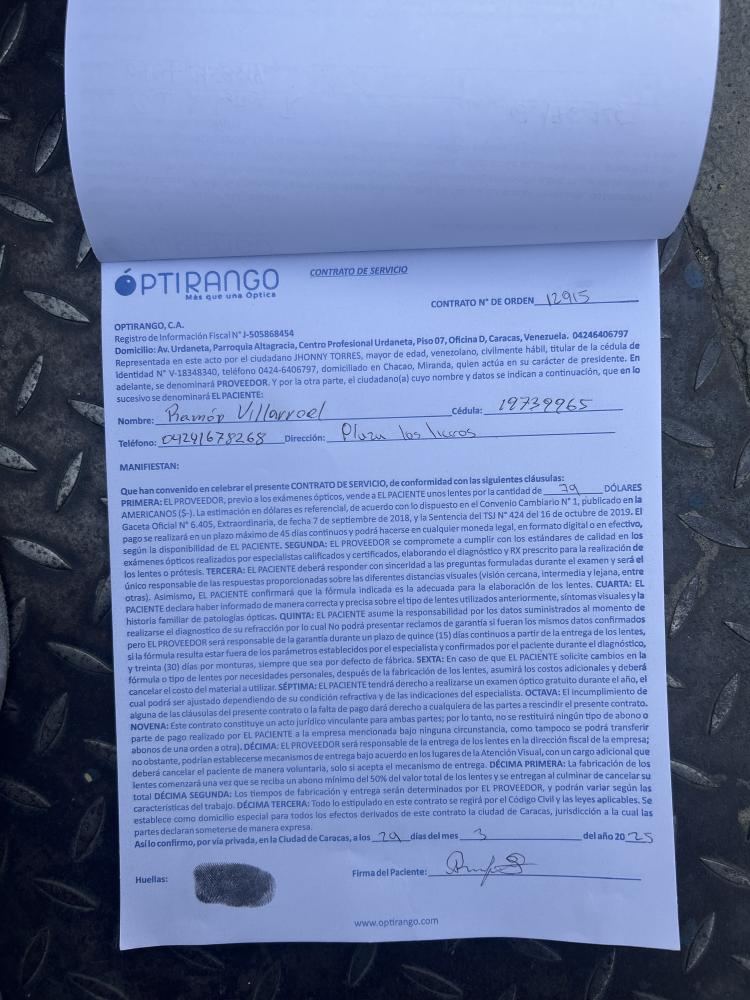 ÓPTIRANGO
Más que una Óptica
CONTRATO DE SERVICIO
CONTRATO N° DE ORDEN 12915
OPTIRANGO, C.A.
Registro de Información Fiscal N° J-505868454
Domicilio: Av. Urdaneta, Parroquia Altagracia, Centro Profesional Urdaneta, Piso 07, Oficina D, Caracas, Venezuela. 04246406797
Representada en este acto por el ciudadano JHONNY TORRES, mayor de edad, venezolano, civilmente hábil, titular de la cédula de
Identidad N° V-18348340, teléfono 0424-6406797, domiciliado en Chacao, Miranda, quien actúa en su carácter de presidente. En
adelante, se denominará PROVEEDOR. Y por la otra parte, el ciudadano(a) cuyo nombre y datos se indican a continuación, que en lo
sucesivo se denominará EL PACIENTE:
Nombre: Ramón Villarroel Cédula: 19739965
Teléfono: 04241678268 Dirección: Plaza los
MANIFIESTAN:
Que han convenido en celebrar el presente CONTRATO DE SERVICIO, de conformidad con las siguientes cláusulas:
PRIMERA: EL PROVEEDOR, previo a los exámenes ópticos, vende a EL PACIENTE unos lentes por la cantidad de 79 DÓLARES
AMERICANOS ($-). La estimación en dólares es referencial, de acuerdo con lo dispuesto en el Convenio Cambiario N° 1, publicado en la
Gaceta Oficial N° 6.405, Extraordinaria, de fecha 7 de septiembre de 2018, y la Sentencia del TSJ N° 424 del 16 de octubre de 2019. El
pago se realizará en un plazo máximo de 45 días continuos y podrá hacerse en cualquier moneda legal, en formato digital o en efectivo,
según la disponibilidad de EL PACIENTE. SEGUNDA: EL PROVEEDOR se compromete a cumplir con los estándares de calidad en los
exámenes ópticos realizados por especialistas calificados y certificados, elaborando el diagnóstico y RX prescrito para la realización de
los lentes o prótesis. TERCERA: EL PACIENTE deberá responder con sinceridad a las preguntas formuladas durante el examen y será el
único responsable de las respuestas proporcionadas sobre las diferentes distancias visuales (visión cercana, intermedia y lejana, entre
otras). Asimismo, EL PACIENTE confirmará que la fórmula indicada es la adecuada para la elaboración de los lentes. CUARTA: EL
PACIENTE declara haber informado de manera correcta y precisa sobre el tipo de lentes utilizados anteriormente, síntomas visuales y la
historia familiar de patologías ópticas. QUINTA: EL PACIENTE asume la responsabilidad por los datos suministrados al momento de
realizarse el diagnostico de su refracción por lo cual No podrá presentar reclamos de garantía si fueran los mismos datos confirmados
pero EL PROVEEDOR será responsable de la garantía durante un plazo de quince (15) días continuos a partir de la entrega de los lentes,
si la fórmula resulta estar fuera de los parámetros establecidos por el especialista y confirmados por el paciente durante el diagnóstico,
y treinta (30) días por monturas, siempre que sea por defecto de fábrica. SEXTA: En caso de que EL PACIENTE solicite cambios en la
fórmula o tipo de lentes por necesidades personales, después de la fabricación de los lentes, asumirá los costos adicionales y deberá
cancelar el costo del material a utilizar. SÉPTIMA: EL PACIENTE tendrá derecho a realizarse un examen óptico gratuito durante el año, el
cual podrá ser ajustado dependiendo de su condición refractiva y de las indicaciones del especialista. OCTAVA: El incumplimiento de
alguna de las cláusulas del presente contrato o la falta de pago dará derecho a cualquiera de las partes a rescindir el presente contrato.
NOVENA: Este contrato constituye un acto jurídico vinculante para ambas partes; por lo tanto, no se restituirá ningún tipo de abono o
parte de pago realizado por EL PACIENTE a la empresa mencionada bajo ninguna circunstancia, como tampoco se podrá transferir
abonos de una orden a otra). DÉCIMA: EL PROVEEDOR será responsable de la entrega de los lentes en la dirección fiscal de la empresa;
no obstante, podrían establecerse mecanismos de entrega bajo acuerdo en los lugares de la Atención Visual, con un cargo adicional que
deberá cancelar el paciente de manera voluntaria, solo si acepta el mecanismo de entrega. DÉCIMA PRIMERA: La fabricación de los
lentes comenzará una vez que se reciba un abono mínimo del 50% del valor total de los lentes y se entregan al culminar de cancelar su
total DÉCIMA SEGUNDA: Los tiempos de fabricación y entrega serán determinados por EL PROVEEDOR, y podrán variar según las
características del trabajo. DÉCIMA TERCERA: Todo lo estipulado en este contrato se regirá por el Código Civil y las leyes aplicables. Se
establece como domicilio especial para todos los efectos derivados de este contrato la ciudad de Caracas, jurisdicción a la cual las
partes declaran someterse de manera expresa.
Así lo confirmo, por vía privada, en la Ciudad de Caracas, a los 29 días del mes 3 del año 2025
Huellas:
Firma del Paciente:
www.optirango.com